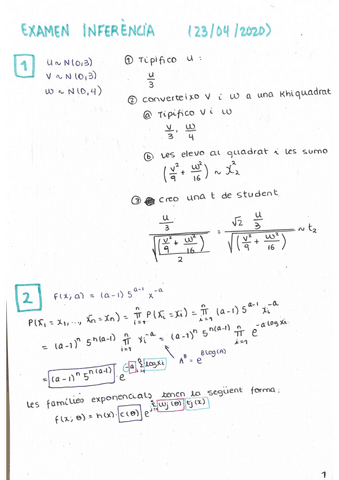 EXAMEN INFERÈNCIA (23/04/2020)
1
u ~ N(0,3)
v ~ N(0,3)
w ~ N(0,4)
① Tipifico u:
u/3
② converteixo v i w a una khiquadrat
ⓐ Tipifico v i w
v/3, w/4
ⓑ Les elevo al quadrat i les sumo
(v²/9 + w²/16) ~ χ²₂
③ creo una t de student
(u/3) / √((v²/9 + w²/16)/2) = (√2 u/3) / √(v²/9 + w²/16) ~ t₂
2
f(x,a) = (a-1) 5^(a-1) x^(-a)
P(x₁ = x₁, ..., xₙ = xₙ) = ∏ᵢ₌₁ⁿ P(xᵢ = xᵢ) = ∏ᵢ₌₁ⁿ (a-1) 5^(a-1) xᵢ^(-a)
= (a-1)ⁿ 5^(n(a-1)) ∏ᵢ₌₁ⁿ xᵢ^(-a) = (a-1)ⁿ 5^(n(a-1)) ∏ᵢ₌₁ⁿ e^(-a log xᵢ)
A^B = e^(B log(A))
= (a-1)ⁿ 5^(n(a-1)) · e^(-a Σᵢ₌₁ⁿ log xᵢ)
Les famílies exponencials tenen la següent forma:
f(x; θ) = h(x) · c(θ) e^(Σ wj(θ) tj(x))
1